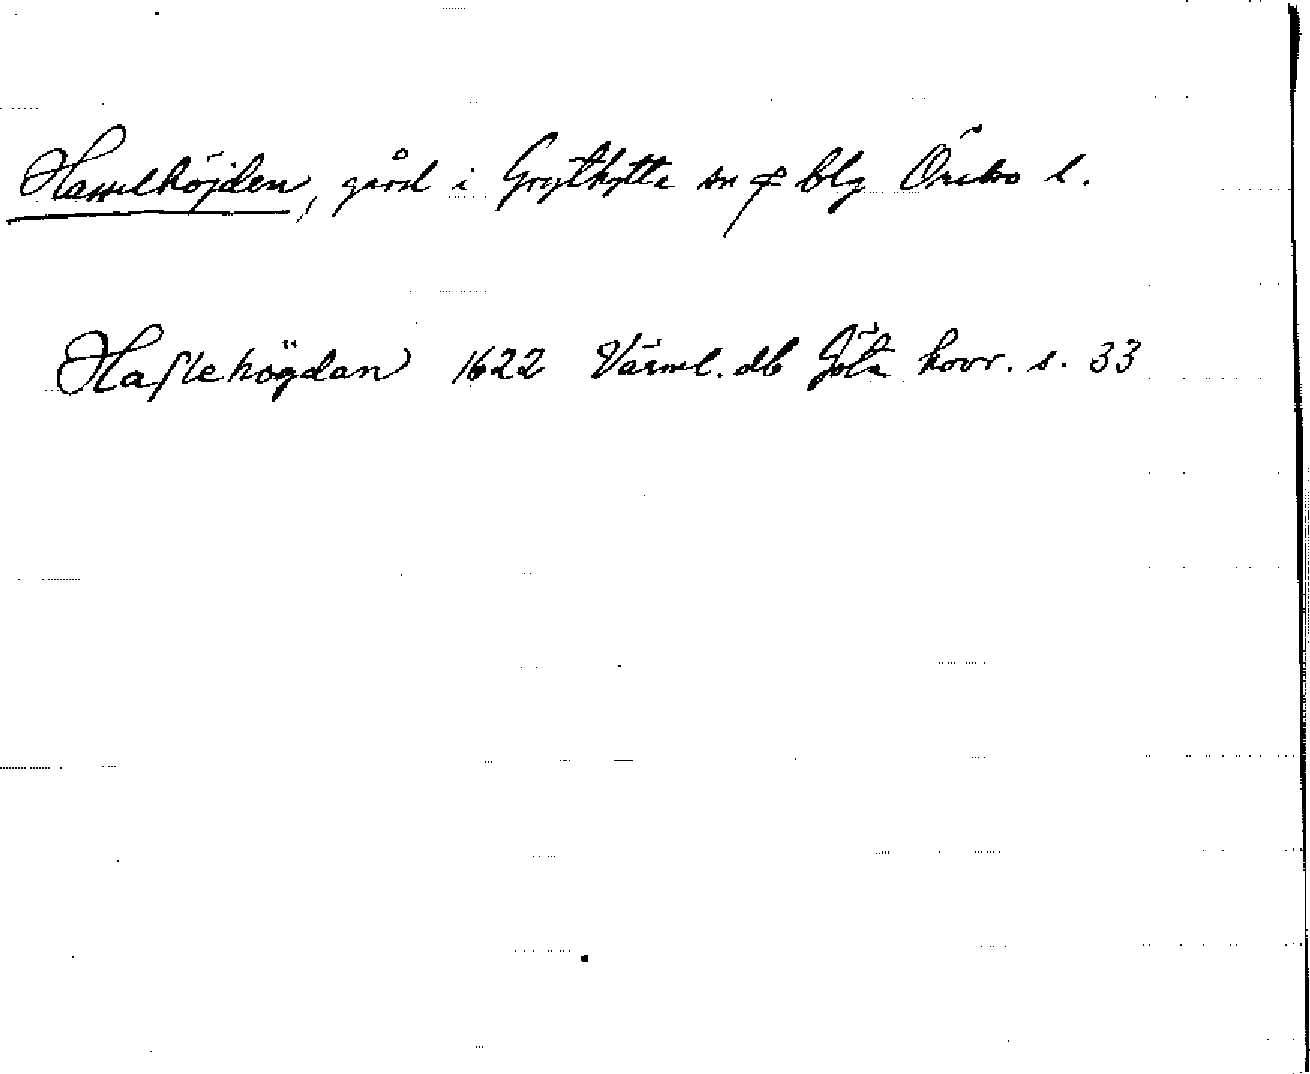 Hasselhöjden, gård i Grythytte sn o blg Örebro l.
Haſlehögdan 1622 Värml. db Göta hovr. s. 33